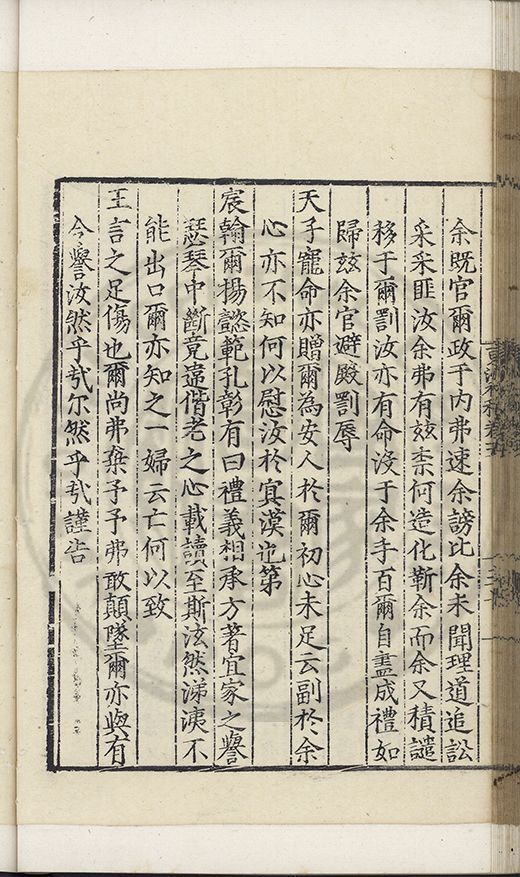 余既官爾政于内弗速余謗比余未聞理道追訟
采采匪汝余弗有玆柰何造化靳余而余又積譴
移于爾罰汝亦有命没于余手百爾自盡成禮如
歸玆余官避殿罰辱
天子寵命亦贈爾為安人於爾初心未足云副於余
心亦不知何以慰汝於寘漠也第
宸翰爾揚懿範孔彰有曰禮義相承方著宜家之譽
瑟琴中斷竟違偕老之心載讀至斯泫然涕洟不
能出口爾亦知之一婦云亡何以致
王言之足傷也爾尚弗棄予予弗敢顛墜爾亦與有
令譽汝然乎㢤尔然乎㢤謹告